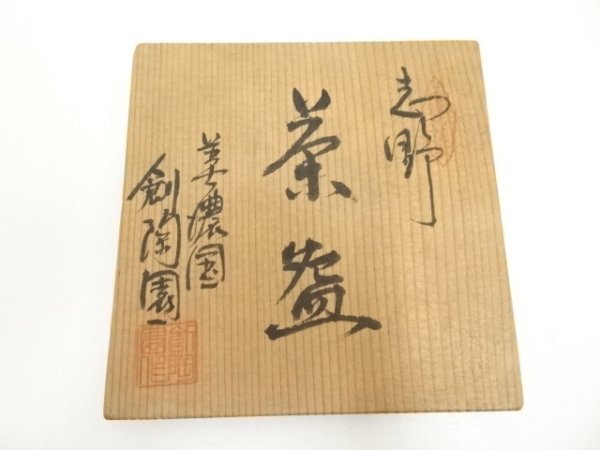 志野
茶盌
美濃国
創陶園